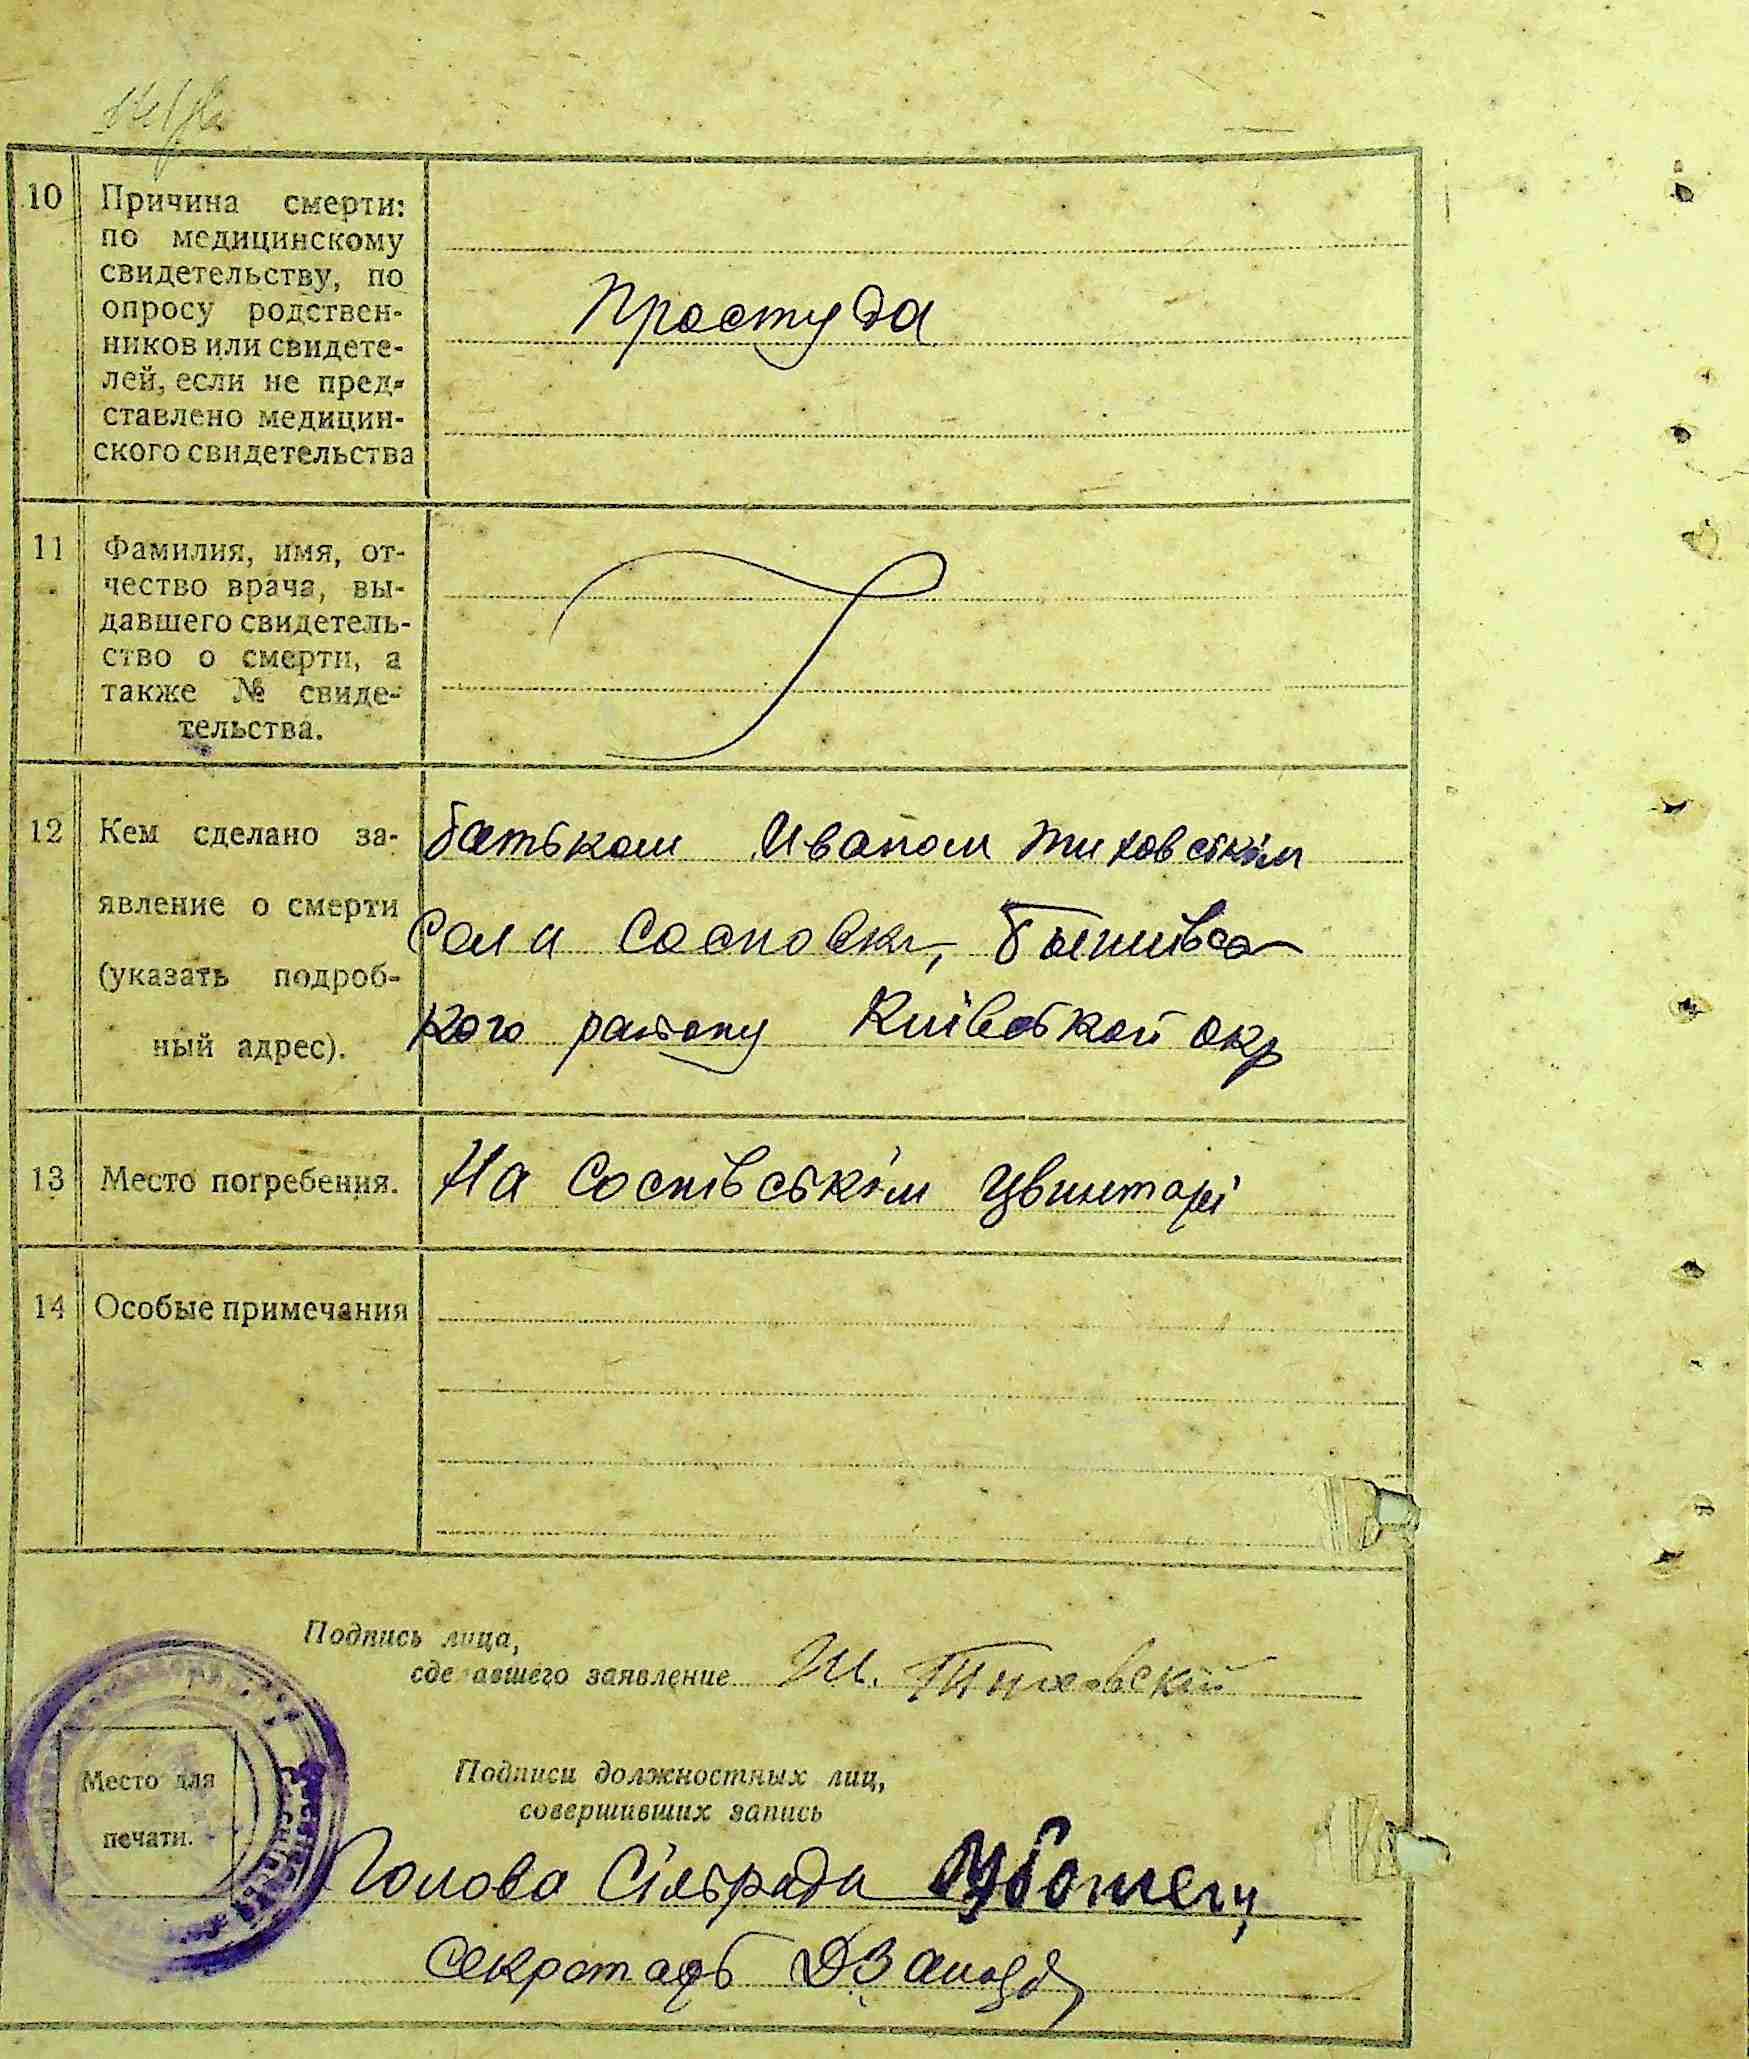 10 Причина смерти:
по медицинскому
свидетельству, по
опросу родствен-
ников или свидете-
лей, если не пред-
ставлено медицин-
ского свидетельства
Простуда
11 Фамилия, имя, от-
чество врача, вы-
давшего свидетель-
ство о смерти, а
также № свиде-
тельства.
12 Кем сделано за-
явление о смерти
(указать подроб-
ный адрес).
батьком Иваном Тиховським
села Сосновки,
кого району Київської окр
13 Место погребения.
На Соснівськім цвинтарі
14 Особые примечания
Подпись лица,
сделавшего заявление Тиховский
Место для
печати.
Подписи должностных лиц,
совершивших запись
Голова Сільради
Секретарь